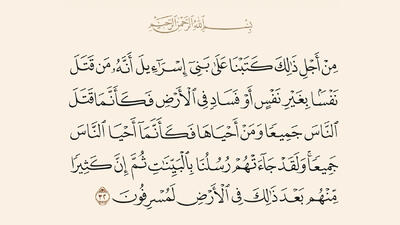 بِسْمِ ٱللَّهِ ٱلرَّحْمَٰنِ ٱلرَّحِيمِ
مِنْ أَجْلِ ذَٰلِكَ كَتَبْنَا عَلَىٰ بَنِىٓ إِسْرَٰٓءِيلَ أَنَّهُۥ مَن قَتَلَ
نَفْسًۢا بِغَيْرِ نَفْسٍ أَوْ فَسَادٍ فِى ٱلْأَرْضِ فَكَأَنَّمَا قَتَلَ
ٱلنَّاسَ جَمِيعًا وَمَنْ أَحْيَاهَا فَكَأَنَّمَآ أَحْيَا ٱلنَّاسَ
جَمِيعًا ۚ وَلَقَدْ جَآءَتْهُمْ رُسُلُنَا بِٱلْبَيِّنَٰتِ ثُمَّ إِنَّ كَثِيرًا
مِّنْهُم بَعْدَ ذَٰلِكَ فِى ٱلْأَرْضِ لَمُسْرِفُونَ ٣٢